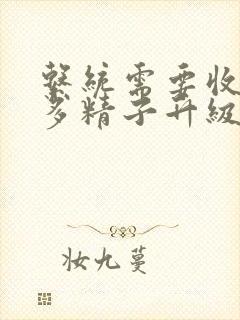 繫統需要收
多精子升級
妆九蔓